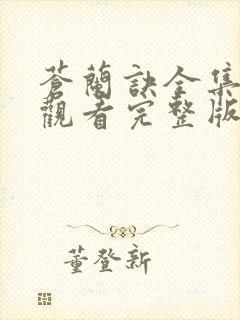 蒼蘭訣全集
觀看完整版
董登新